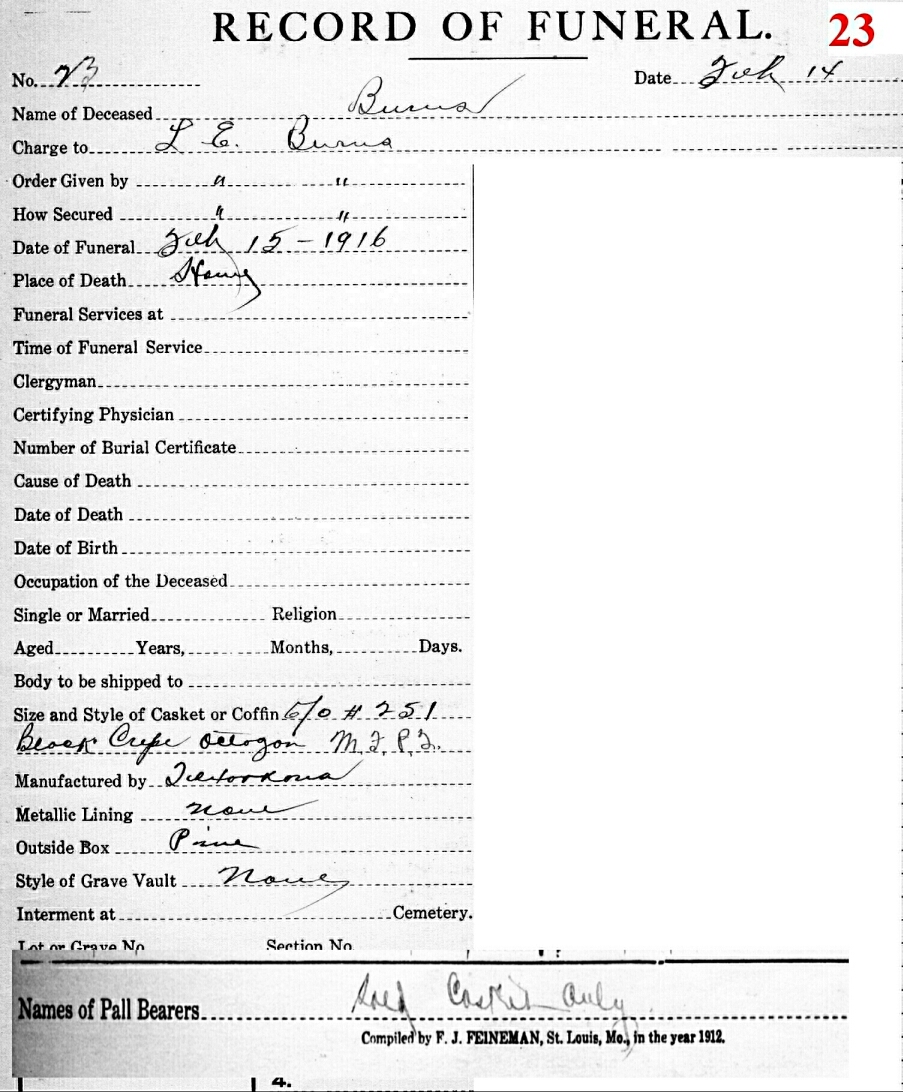 RECORD OF FUNERAL. 23
No. 23 Date Feb 14
Name of Deceased Burns
Charge to L E. Burns
Order Given by " "
How Secured " "
Date of Funeral Feb 15 - 1916
Place of Death Home
Funeral Services at
Time of Funeral Service
Clergyman
Certifying Physician
Number of Burial Certificate
Cause of Death
Date of Death
Date of Birth
Occupation of the Deceased
Single or Married Religion
Aged Years, Months, Days.
Body to be shipped to
Size and Style of Casket or Coffin 6/0 # 251
Black Crepe Octogon
Manufactured by
Metallic Lining None
Outside Box Pine
Style of Grave Vault None
Interment at Cemetery.
Lot or Grave No. Section No.
Names of Pall Bearers Sold Casket Only
Compiled by F. J. FEINEMAN, St. Louis, Mo., in the year 1912.
4.